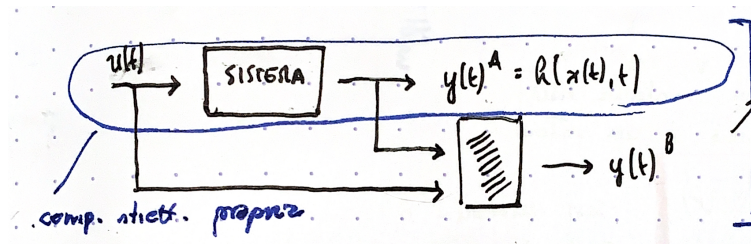 u(t)
SISTEMA
y(t)^A = h(x(t),t)
y(t)^B
comp. strett. propria